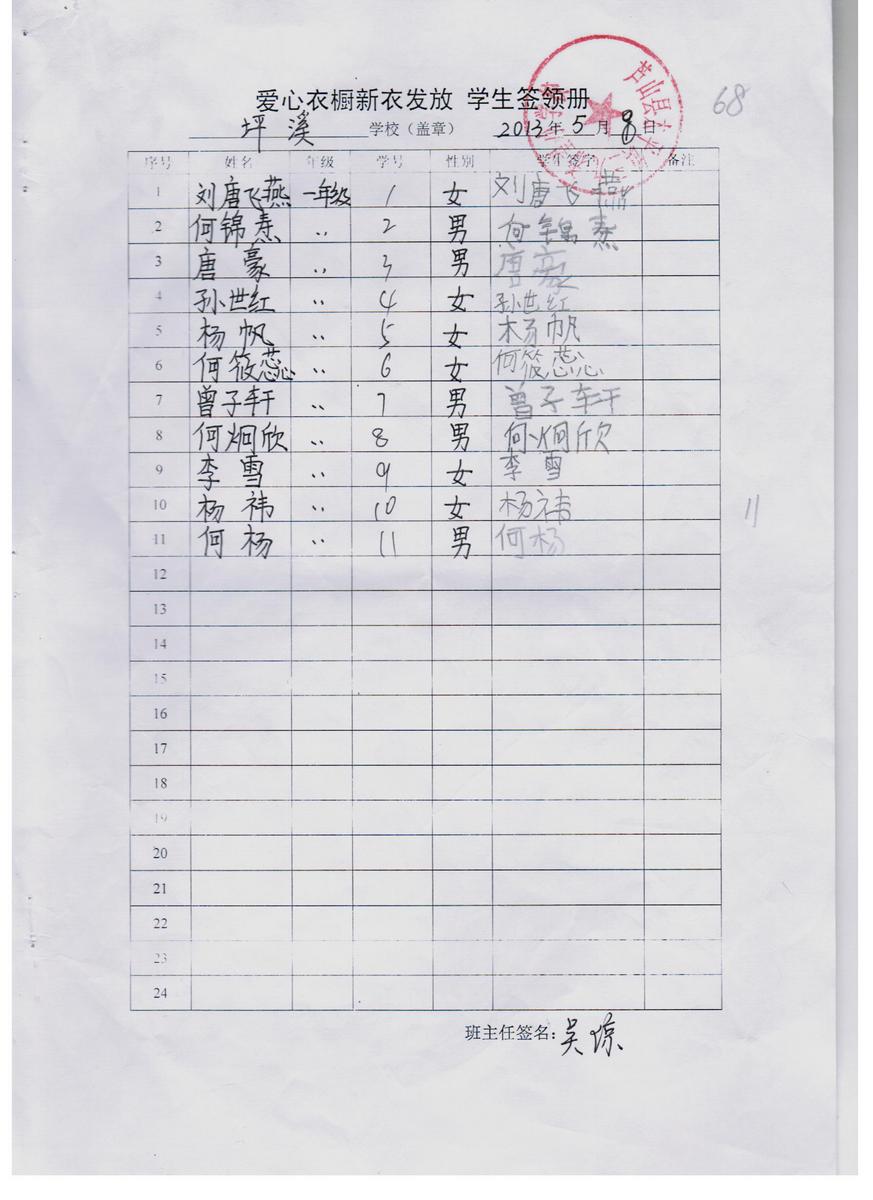 爱心衣橱新衣发放 学生签领册
68
坪溪 学校（盖章） 2013年5月8日
芦山县太平
序号 姓名 年级 学号 性别 学生签字 备注
1 刘唐飞燕 一年级 1 女 刘唐飞燕
2 何锦焘 〃 2 男 何锦焘
3 唐豪 〃 3 男 唐豪
4 孙世红 〃 4 女 孙世红
5 杨帆 〃 5 女 杨帆
6 何筱蕊 〃 6 女 何筱蕊
7 曾子轩 〃 7 男 曾子轩
8 何炯欣 〃 8 男 何炯欣
9 李雪 〃 9 女 李雪
10 杨祎 〃 10 女 杨祎
11 何杨 〃 11 男 何杨
11
12
13
14
15
16
17
18
19
20
21
22
23
24
班主任签名：吴琼